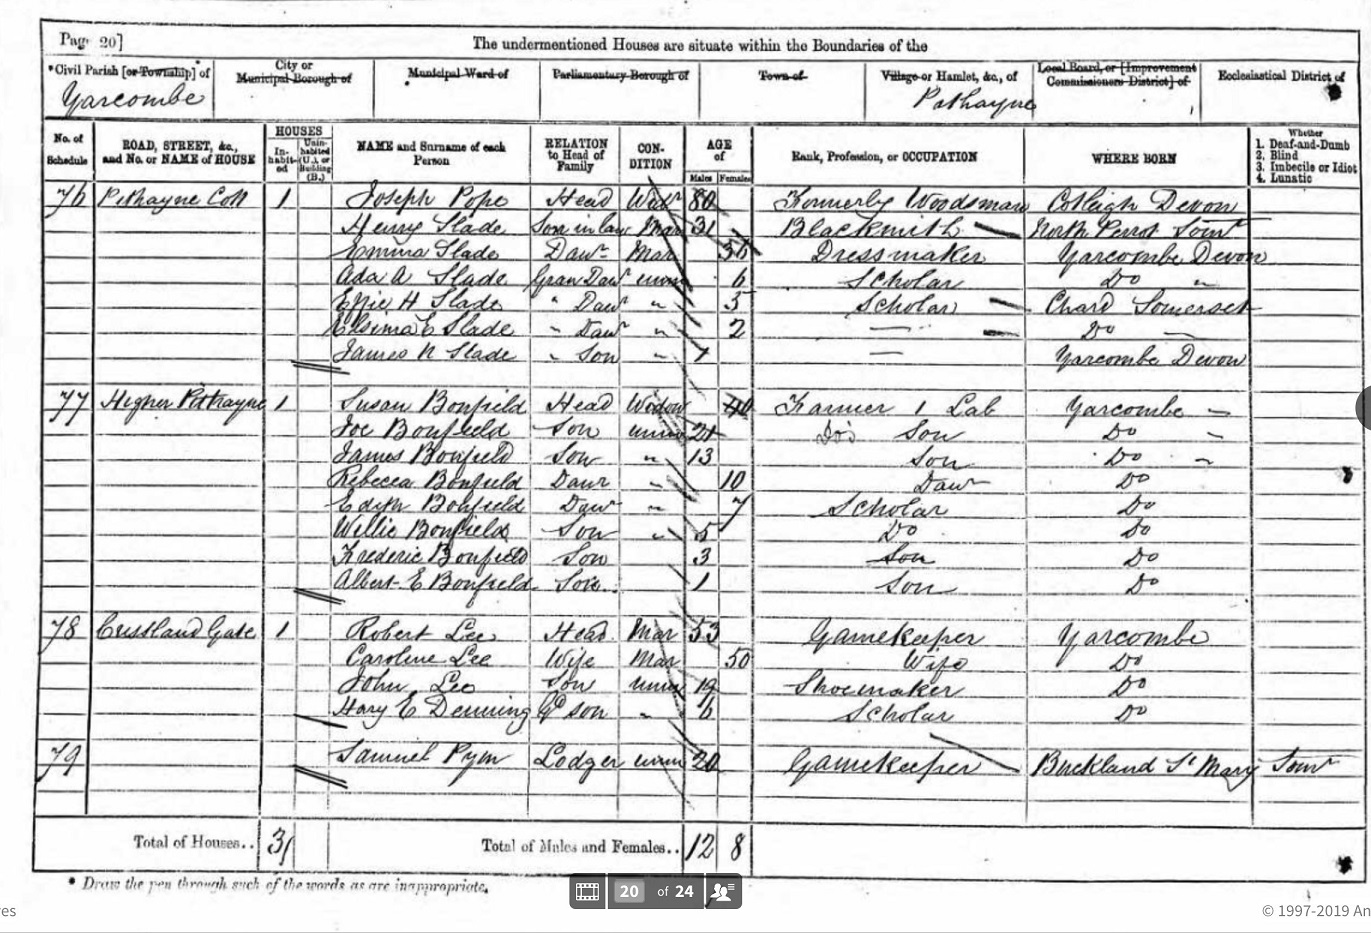 Page 20]
The undermentioned Houses are situate within the Boundaries of the
*Civil Parish [or Township] of City or Municipal Borough of Municipal Ward of Parliamentary Borough of Town of Village or Hamlet, &c., of Local Board, or [Improvement Commissioners District] of Ecclesiastical District of
Yarcombe Pithayne
No. of Schedule ROAD, STREET, &c., and No. or NAME of HOUSE HOUSES In-habit-ed Unin-habited (U.), or Building (B.) NAME and Surname of each Person RELATION to Head of Family CON-DITION AGE of Males Females Rank, Profession, or OCCUPATION WHERE BORN Whether 1. Deaf-and-Dumb 2. Blind 3. Imbecile or Idiot 4. Lunatic
76 Pithayne Cott 1 Joseph Pope Head Widr 80 Formerly Woodsman Cotleigh Devon
Henry Slade Son in law Mar 31 Blacksmith North Perrot Somt
Emma Slade Dawr Mar Dressmaker Yarcombe Devon
Ada A Slade Gran Daw unm 6 Scholar Do "
Effie H Slade " Dawr " 5 Scholar Chard Somerset
E Slade " Dawr " 2 — Do —
James N Slade " Son " 1 — Yarcombe Devon
77 Higher Pithayne 1 Susan Bonfield Head Widow 40 Farmer 1 Lab Yarcombe
Joe Bonfield Son unm 21 Do's Son Do
James Bonfield Son " 13 Son Do
Rebecca Bonfield Dawr " 10 Dawr Do
Edith Bonfield Dawr " 7 Scholar Do
Willie Bonfield Son " 5 Do Do
Frederic Bonfield Son 3 Son Do
Albert E Bonfield Son 1 Son Do
78 Gate 1 Robert Lee Head Mar 53 Gamekeeper Yarcombe
Caroline Lee Wife Mar 50 Wife Do
John Lee Son unm 19 Shoemaker Do
Hary E Denning Gd son " 6 Scholar Do
79 Samuel Pym Lodger unm 20 Gamekeeper Buckland St Mary Somt
Total of Houses.. 3 Total of Males and Females.. 12 8
* Draw the pen through such of the words as are inappropriate.
20 of 24
es
© 1997-2019 An